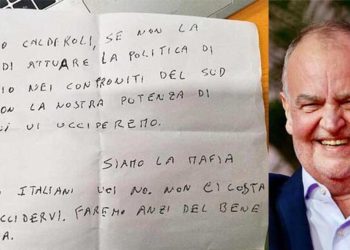 O CALDEROLI, SE NON LA
DI ATTUARE LA POLITICA DI
IO NEI CONFRONTI DEL SUD
ON LA NOSTRA POTENZA DI
VI UCCIDEREMO.
SIAMO LA MAFIA
ITALIANI VOI NO. NON CI COSTA
CCIDERVI. FAREMO ANZI DEL BENE
A.